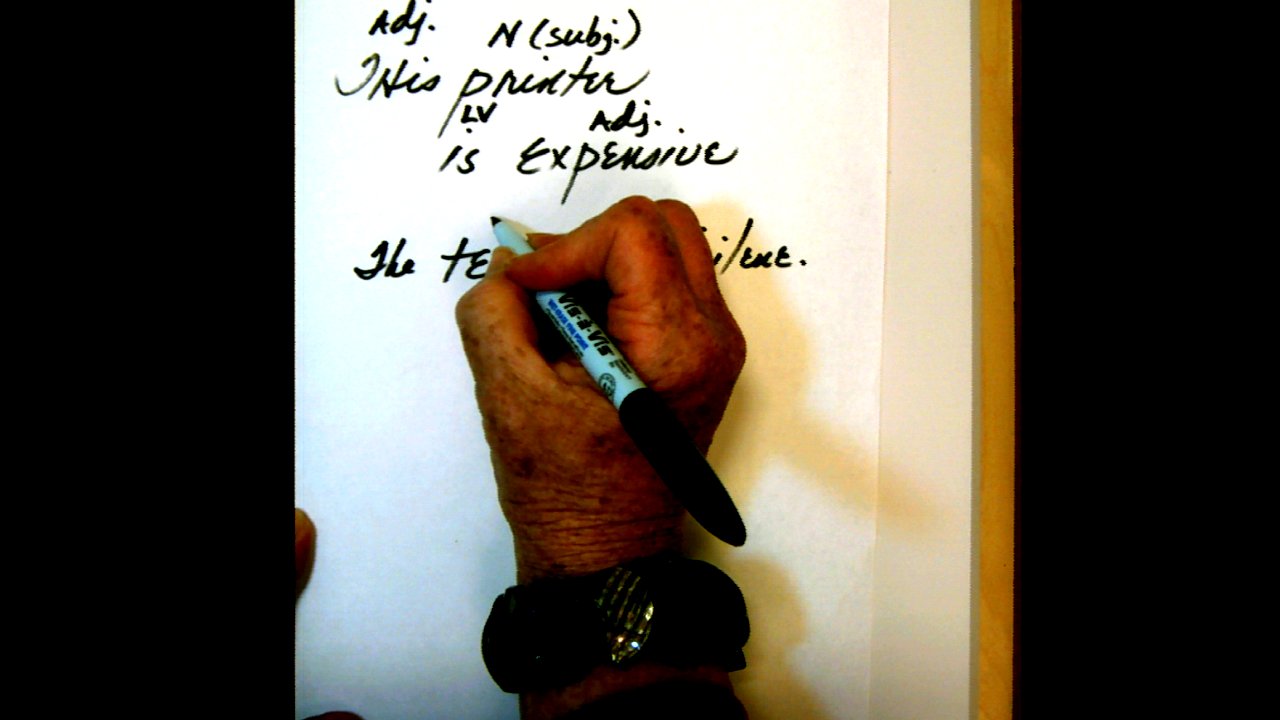 Adj. N (subj.)
This printer
LV Adj.
is Expensive
The silent.
VIS-À-VIS